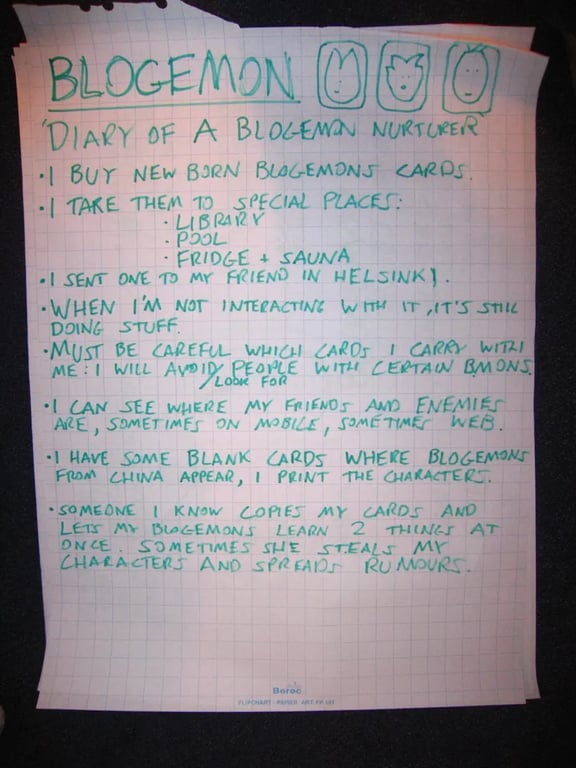 BLOGEMON
'DIARY OF A BLOGEMON NURTURER'
• I BUY NEW BORN BLOGEMONS CARDS.
• I TAKE THEM TO SPECIAL PLACES:
• LIBRARY
• POOL
• FRIDGE + SAUNA
• I SENT ONE TO MY FRIEND IN HELSINKI.
• WHEN I'M NOT INTERACTING WITH IT, IT'S STILL
DOING STUFF.
• MUST BE CAREFUL WHICH CARDS I CARRY WITH
ME: I WILL AVOID/ PEOPLE WITH CERTAIN BMONS.
LOOK FOR
• I CAN SEE WHERE MY FRIENDS AND ENEMIES
ARE, SOMETIMES ON MOBILE, SOMETIMES WEB.
• I HAVE SOME BLANK CARDS WHERE BLOGEMONS
FROM CHINA APPEAR, I PRINT THE CHARACTERS.
• SOMEONE I KNOW COPIES MY CARDS AND
LETS MY BLOGEMONS LEARN 2 THINGS AT
ONCE. SOMETIMES SHE STEALS MY
CHARACTERS AND SPREADS RUMOURS.
Boroc